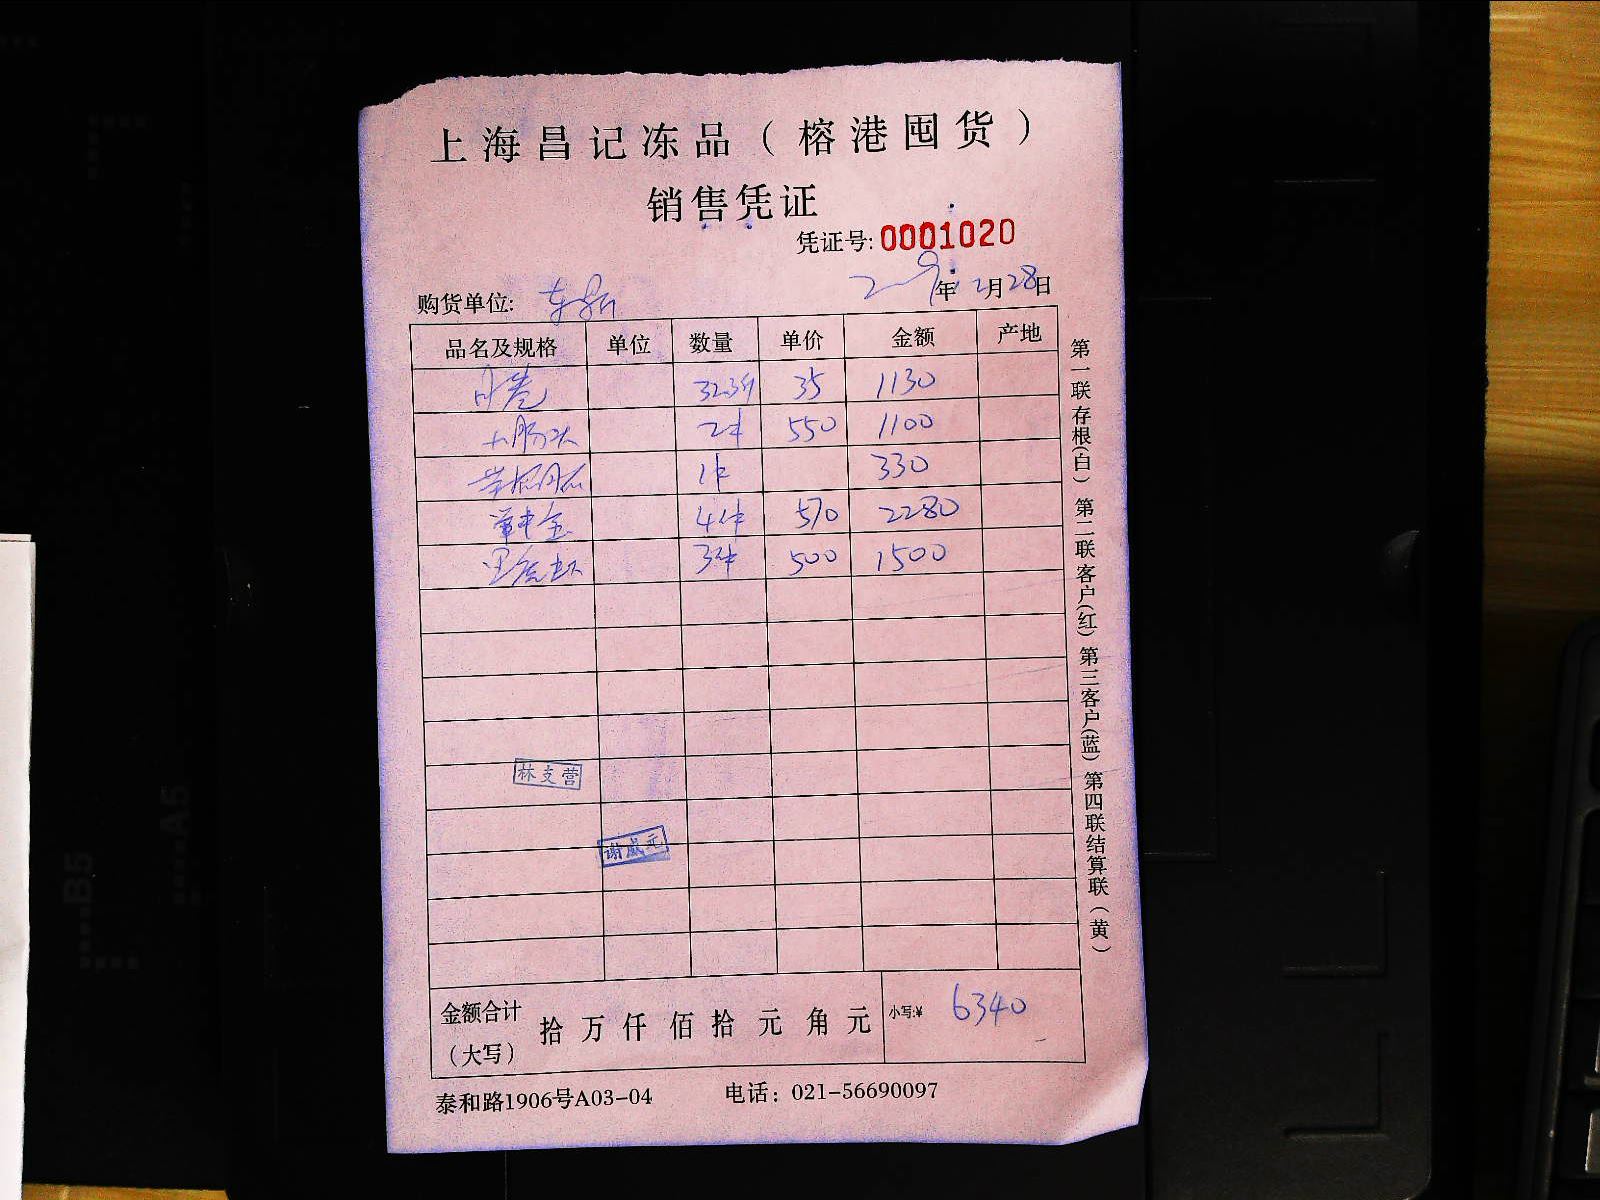 上海昌记冻品（榕港囤货）
销售凭证
凭证号:0001020
购货单位:
年2月28日
品名及规格 单位 数量 单价 金额 产地
32.3斤 35 1130
大肠头 2件 550 1100
1件 330
4件 570 2280
黑虎虾 3件 500 1500
林支营
谢威元
金额合计（大写） 拾万仟佰拾元角元 小写:¥ 6340
泰和路1906号A03-04 电话：021-56690097
第一联存根(白) 第二联客户(红) 第三客户(蓝) 第四联结算联（黄）
B5
A5